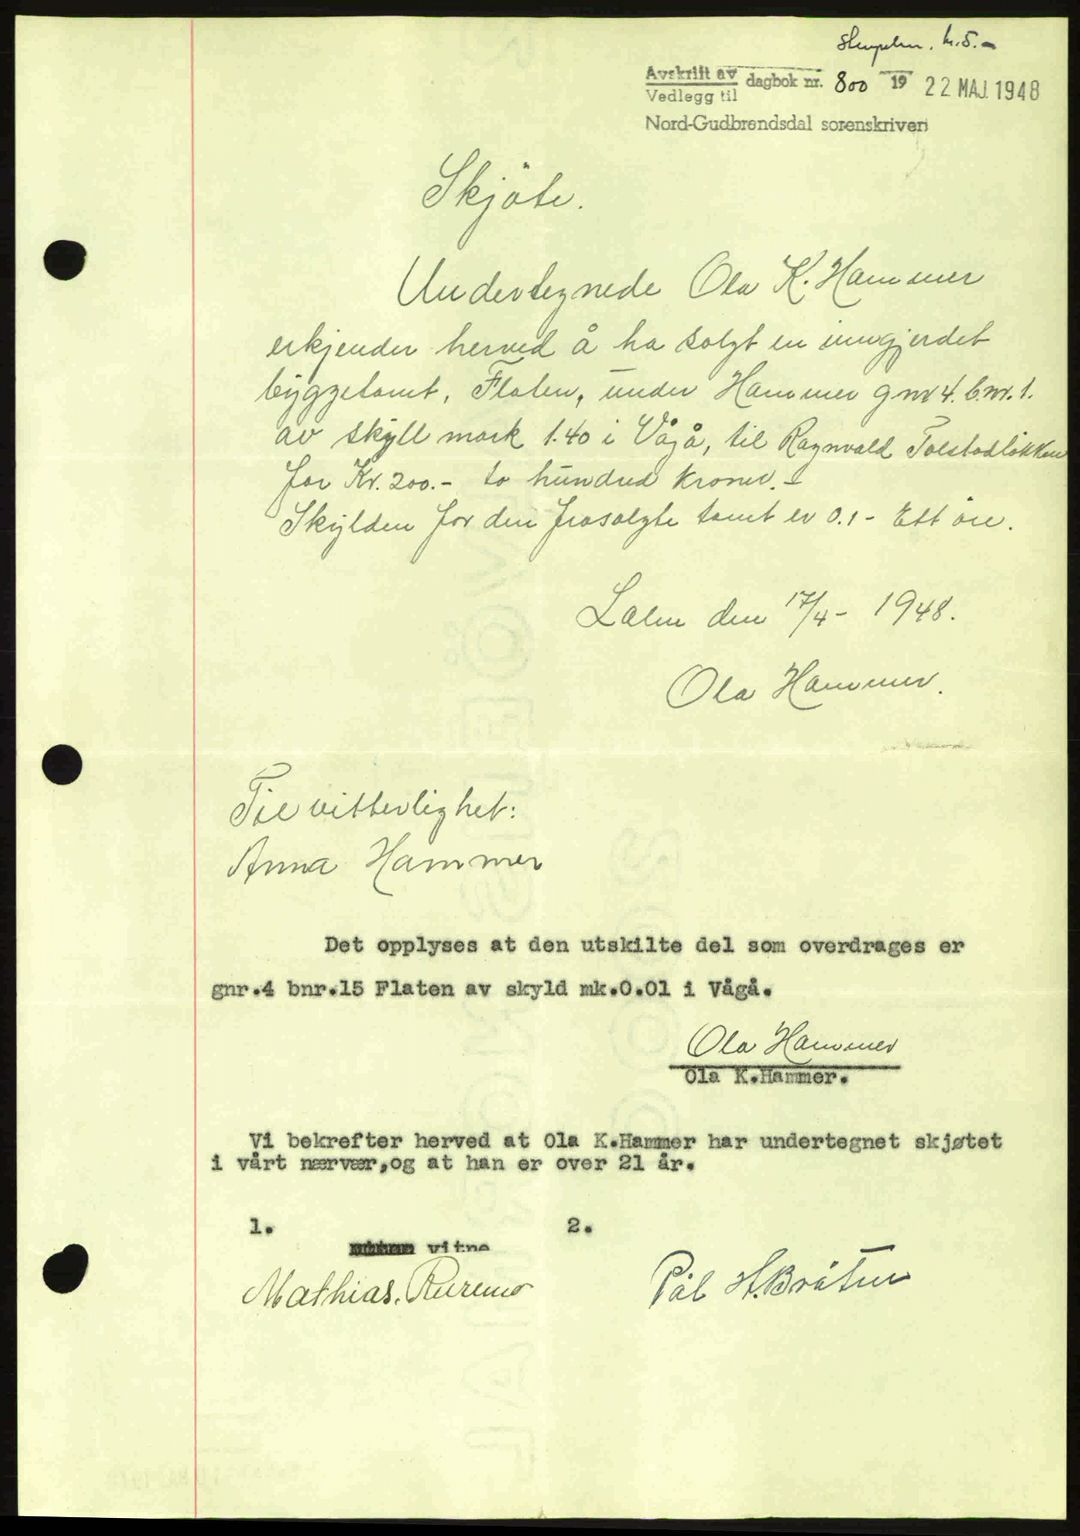 Stempelm. kr. 5.-
Avskrift av
Vedlegg til dagbok nr. 800 19 22 MAJ. 1948
Nord-Gudbrandsdal sorenskriveri
Skjöte.
Undertegnede Ola K. Hammer
erkjender herved å ha solgt en inngjerdet
byggetomt, Flaten, under Hammer gnr 4. b.nr. 1.
av skyll mark 1.40 i Vågå, til Ragnvald Tolstadløkken
for Kr. 200.- to hundred kroner.-
Skylden for den frasolgte tomt er 0.1- Ett öre.
Lalm den 17/4- 1948.
Ola Hammer.
Til vitterlighet:
Anna Hammer
Det opplyses at den utskilte del som overdrages er
gnr.4 bnr.15 Flaten av skyld mk.0.01 i Vågå.
Ola Hammer
Ola K.Hammer.
Vi bekrefter herved at Ola K.Hammer har undertegnet skjøtet
i vårt nærvær,og at han er over 21 år.
1. 2.
vitne
Mathias. Rusmo Pål H. Bråten